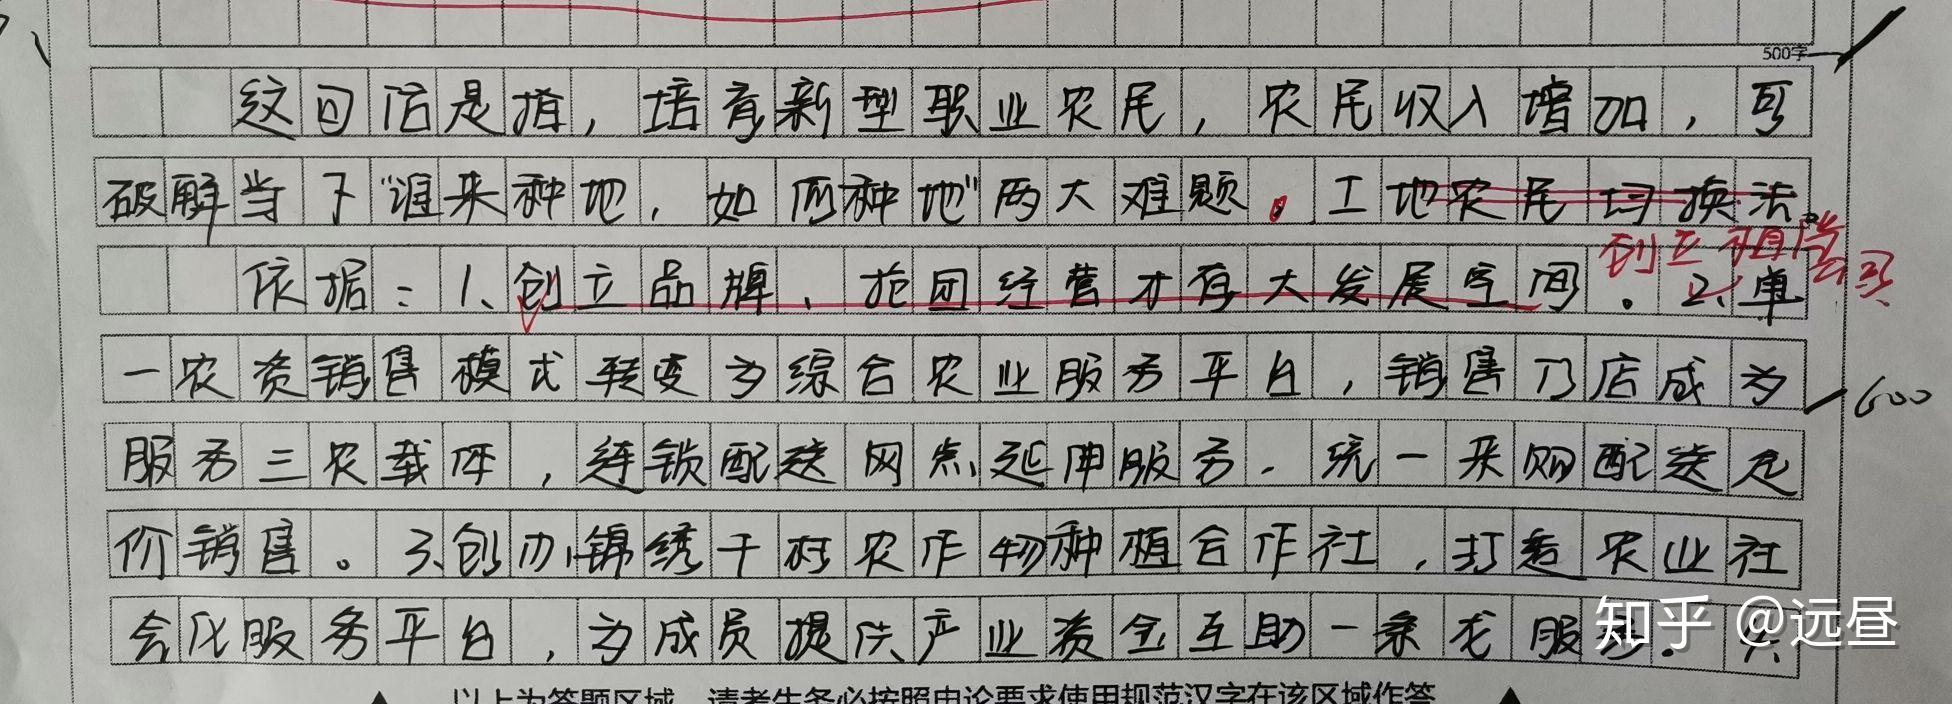 500字
这回信是指，培育新型职业农民，农民收入增加，可
破解当下“谁来种地，如何种地”两大难题。工地农民均换法。
创立
依据：1、创立品牌、抱团经营才有大发展空间。2、单
一农资销售模式转变为综合农业服务平台，销售门店成为
600
服务三农载体，连锁配送网点延伸服务.统一采购配送定
价销售。3、创办锦绣千村农作物种植合作社，打造农业社
会化服务平台，为成员提供产业资金互助一条龙服务.
知乎 @远昼
以上为答题区域，请考生务必按照申论要求使用规范汉字在该区域作答